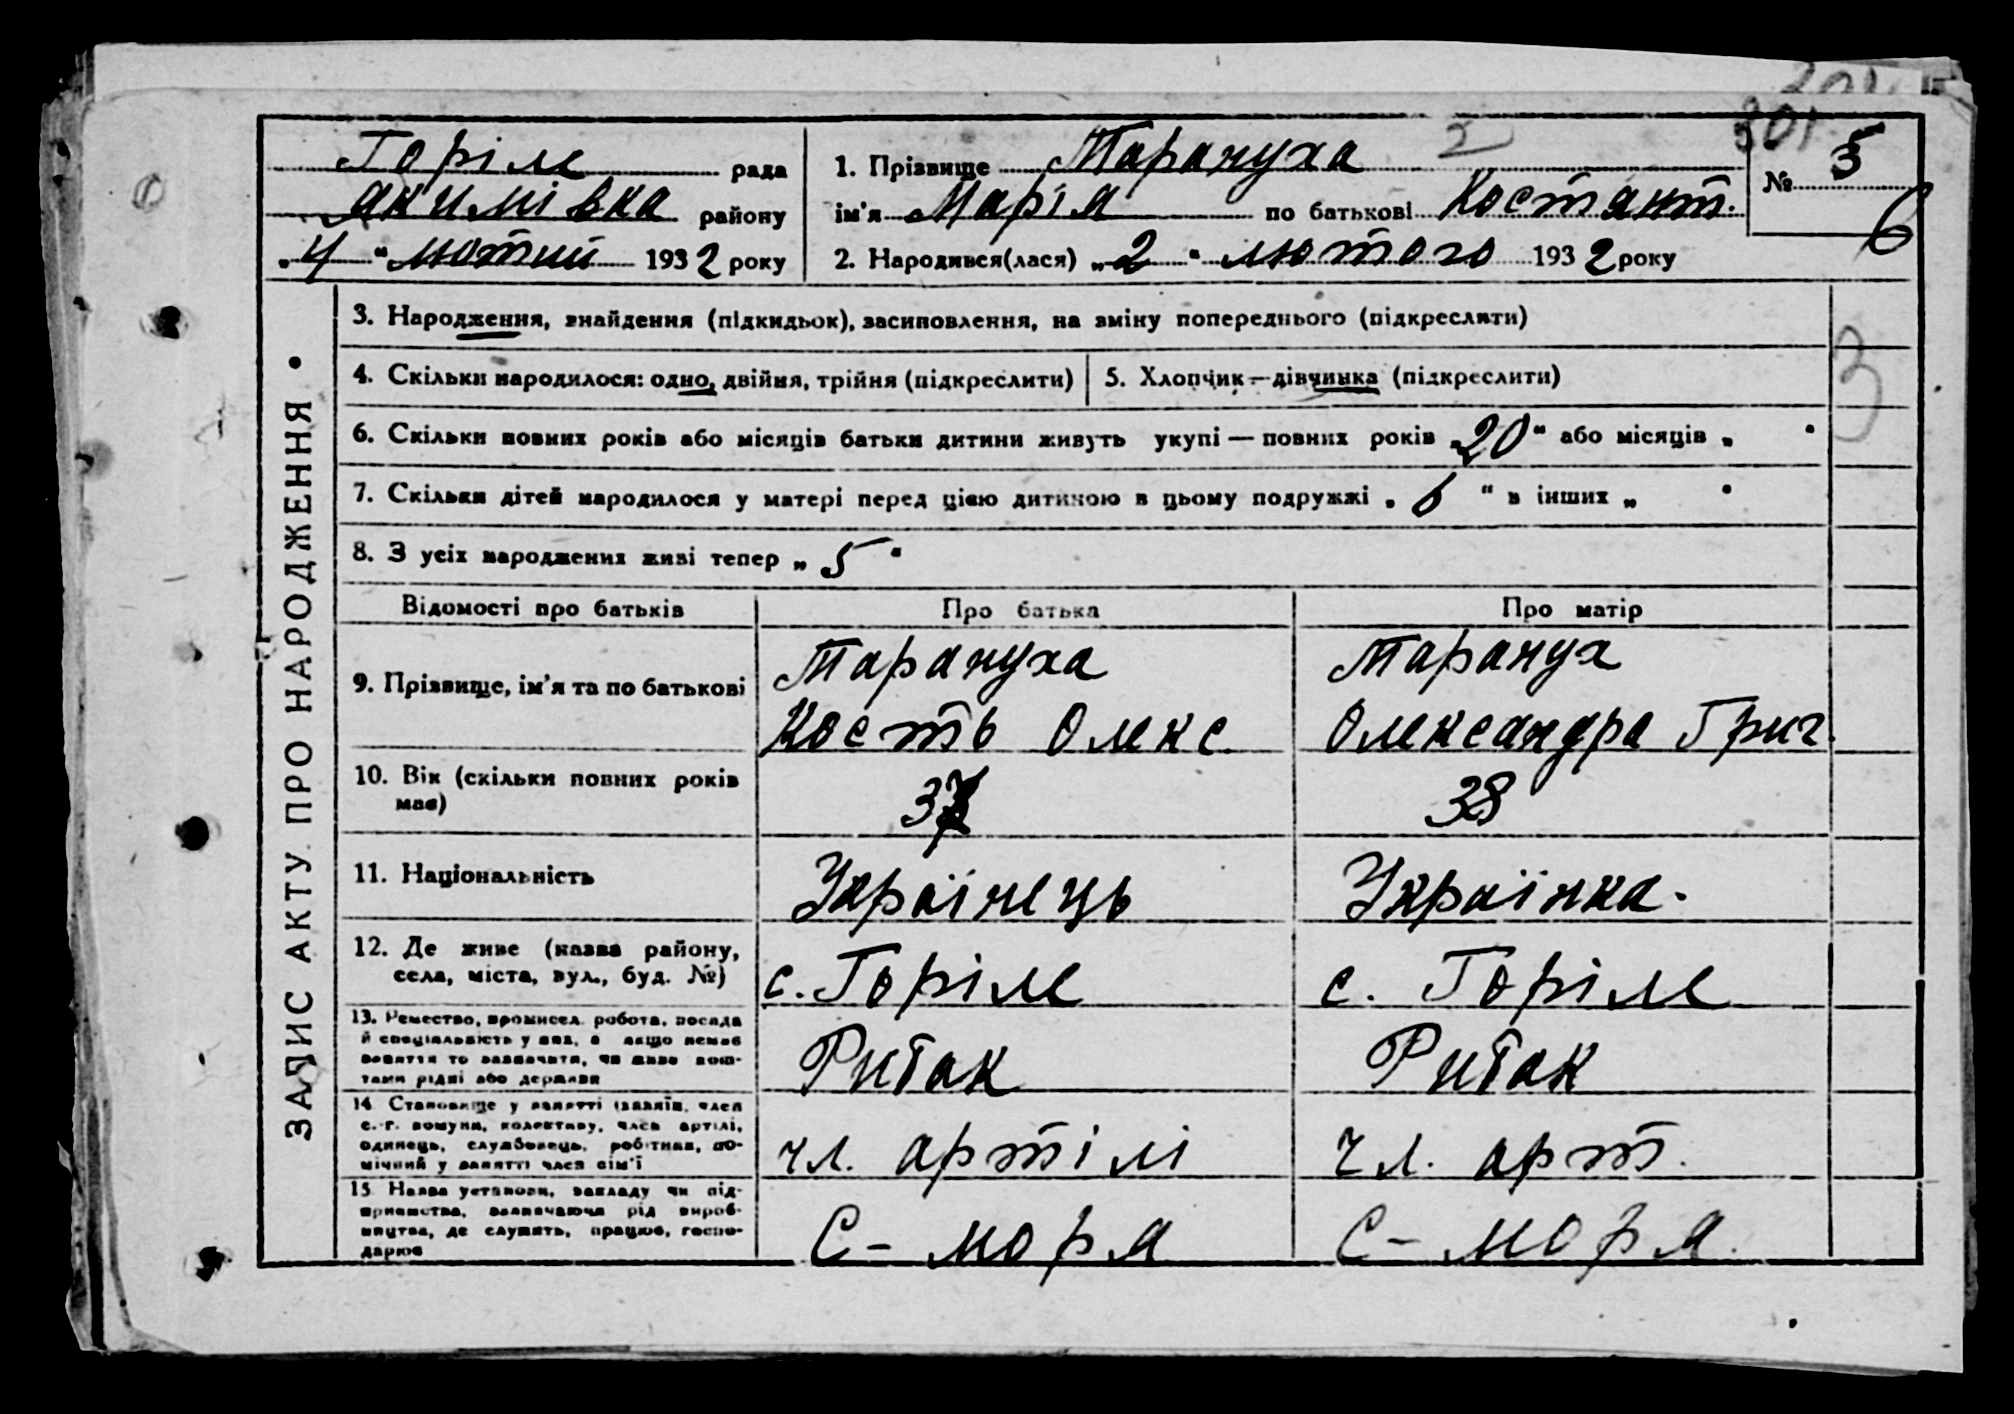 301
Горіле рада
Акимівка району
„4“ лютий 1932 року
1. Прізвище Тарануха 2
ім'я Марія по батькові Костянт.
2. Народився(лася) „2“ лютого 1932 року
№ 5
6
ЗАПИС АКТУ ПРО НАРОДЖЕННЯ •
3. Народження, знайдення (підкидьок), засиновлення, на зміну попереднього (підкреслити)
3
4. Скільки народилося: одно, двійня, трійня (підкреслити)
5. Хлопчик—дівчинка (підкреслити)
6. Скільки повних років або місяців батьки дитини живуть укупі — повних років „20“ або місяців „ “
7. Скільки дітей народилося у матері перед цією дитиною в цьому подружжі „6“ в інших „ “
8. З усіх народжених живі тепер „5“
Відомості про батьків Про батька Про матір
9. Прізвище, ім'я та по батькові
Тарануха
Кость Олекс.
Таранух
Олександра Григ.
10. Вік (скільки повних років має)
38
11. Національність
Українець
Українка.
12. Де живе (назва району,
села, міста, вул., буд. №)
с. Горіле
с. Горіле
13. Ремество, промисел, робота, посада
й спеціяльність у них, а якщо немає
заняття то зазначити, чи живе кош-
тами рідні або держави
Рибак
Рибак
14. Становище у занятті (хазяїн, член
с.-г. комуни, колективу, член артілі,
одинець, службовець, робітник, по-
мічний у занятті член сім'ї
чл. артілі
чл. арт.
15. Назва установи, закладу чи під-
приємства, зазначаючи рід вироб-
ництва, де служить, працює, госпо-
дарює
С- моря
С- моря.